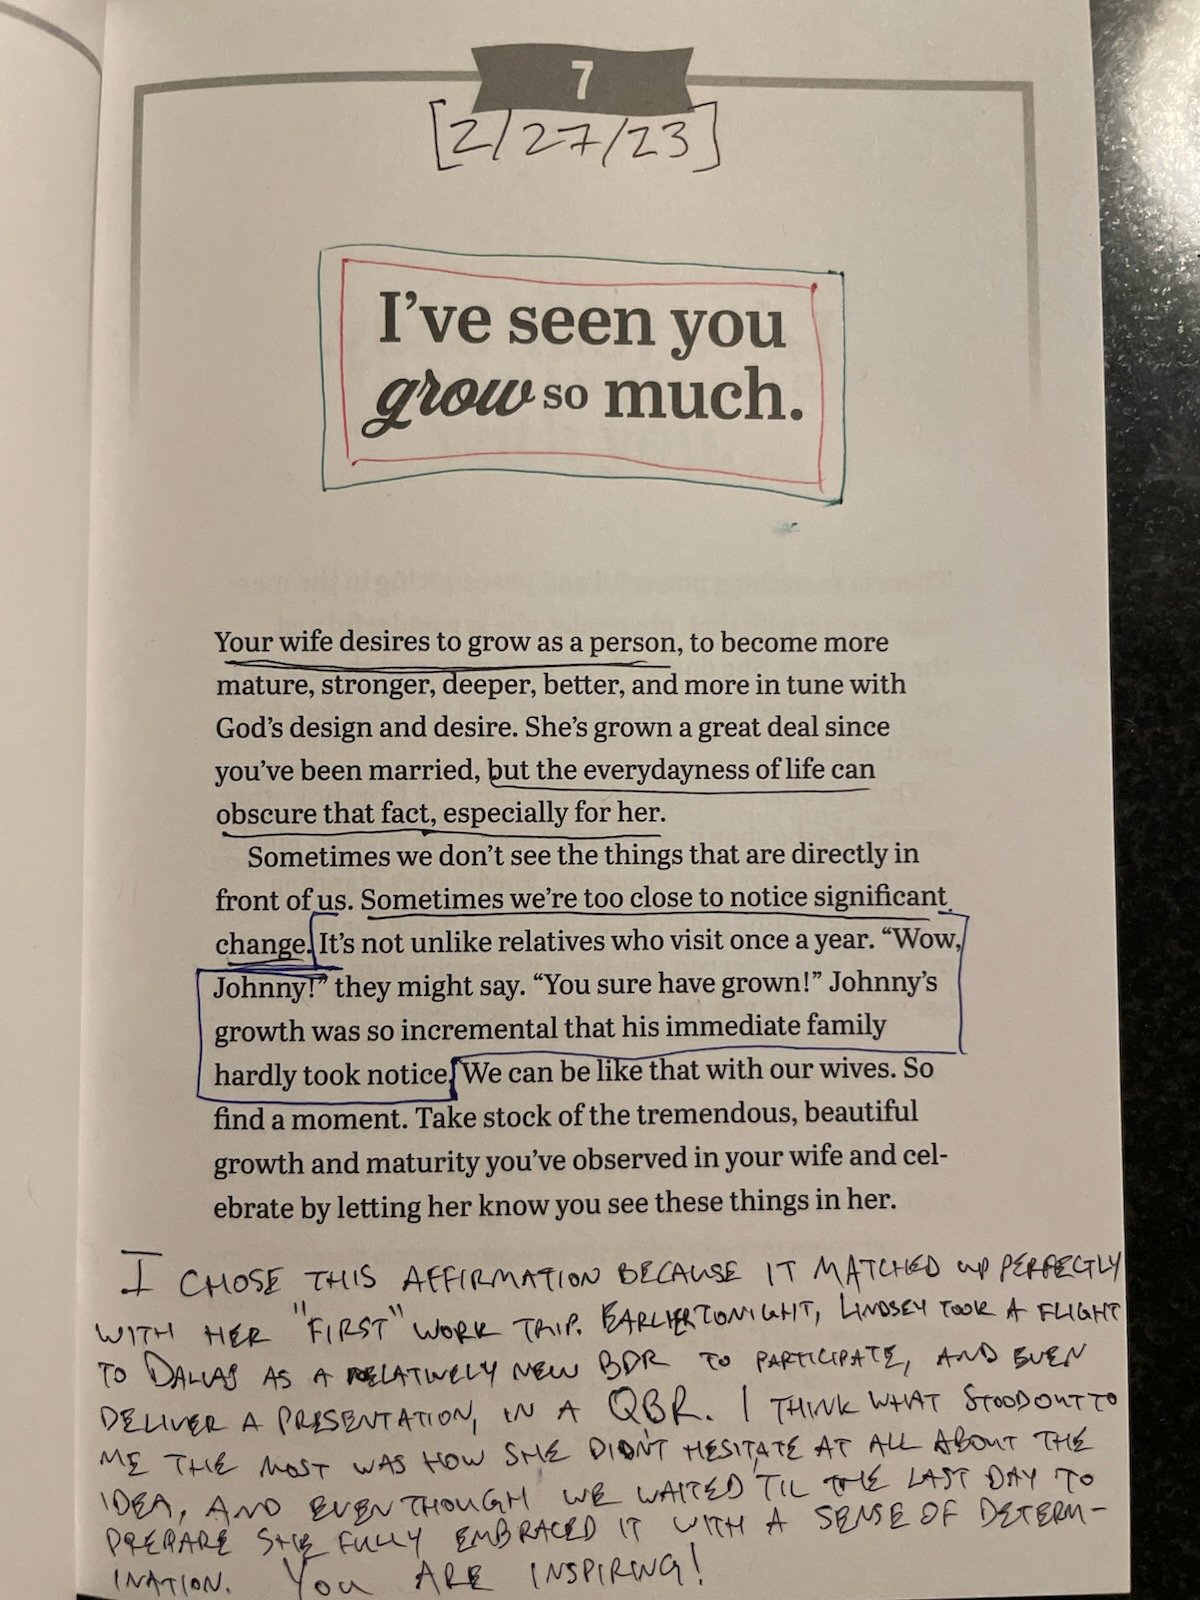 7
[2/27/23]
I've seen you
grow so much.
Your wife desires to grow as a person, to become more
mature, stronger, deeper, better, and more in tune with
God's design and desire. She's grown a great deal since
you've been married, but the everydayness of life can
obscure that fact, especially for her.
Sometimes we don't see the things that are directly in
front of us. Sometimes we're too close to notice significant
change. It's not unlike relatives who visit once a year. “Wow,
Johnny!” they might say. “You sure have grown!” Johnny's
growth was so incremental that his immediate family
hardly took notice. We can be like that with our wives. So
find a moment. Take stock of the tremendous, beautiful
growth and maturity you've observed in your wife and cel-
ebrate by letting her know you see these things in her.
I CHOSE THIS AFFIRMATION BECAUSE IT MATCHED UP PERFECTLY
WITH HER "FIRST" WORK TRIP. EARLIER TONIGHT, LINDSEY TOOK A FLIGHT
TO DALLAS AS A RELATIVELY NEW BDR TO PARTICIPATE, AND EVEN
DELIVER A PRESENTATION, IN A QBR. I THINK WHAT STOOD OUT TO
ME THE MOST WAS HOW SHE DIDN'T HESITATE AT ALL ABOUT THE
IDEA, AND EVEN THOUGH WE WAITED 'TIL THE LAST DAY TO
PREPARE SHE FULLY EMBRACED IT WITH A SENSE OF DETERM-
INATION. YOU ARE INSPIRING!